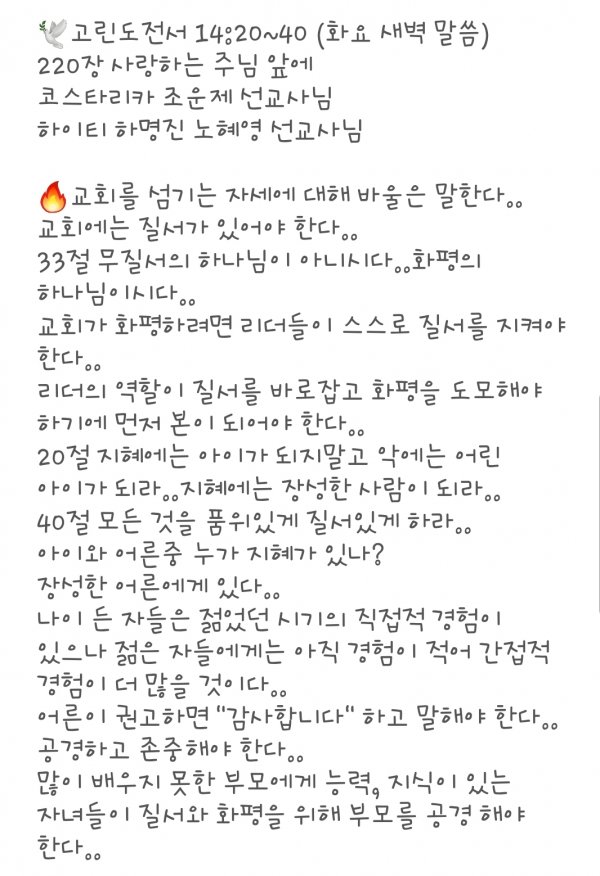 🕊고린도전서 14:20~40 (화요 새벽 말씀)
220장 사랑하는 주님 앞에
코스타리카 조운제 선교사님
하이티 하명진 노혜영 선교사님
🔥교회를 섬기는 자세에 대해 바울은 말한다..
교회에는 질서가 있어야 한다..
33절 무질서의 하나님이 아니시다..화평의
하나님이시다..
교회가 화평하려면 리더들이 스스로 질서를 지켜야
한다..
리더의 역할이 질서를 바로잡고 화평을 도모해야
하기에 먼저 본이 되어야 한다..
20절 지혜에는 아이가 되지말고 악에는 어린
아이가 되라..지혜에는 장성한 사람이 되라..
40절 모든 것을 품위있게 질서있게 하라..
아이와 어른중 누가 지혜가 있나?
장성한 어른에게 있다..
나이 든 자들은 젊었던 시기의 직접적 경험이
있으나 젊은 자들에게는 아직 경험이 적어 간접적
경험이 더 많을 것이다..
어른이 권고하면 "감사합니다" 하고 말해야 한다..
공경하고 존중해야 한다..
많이 배우지 못한 부모에게 능력, 지식이 있는
자녀들이 질서와 화평을 위해 부모를 공경 해야
한다..